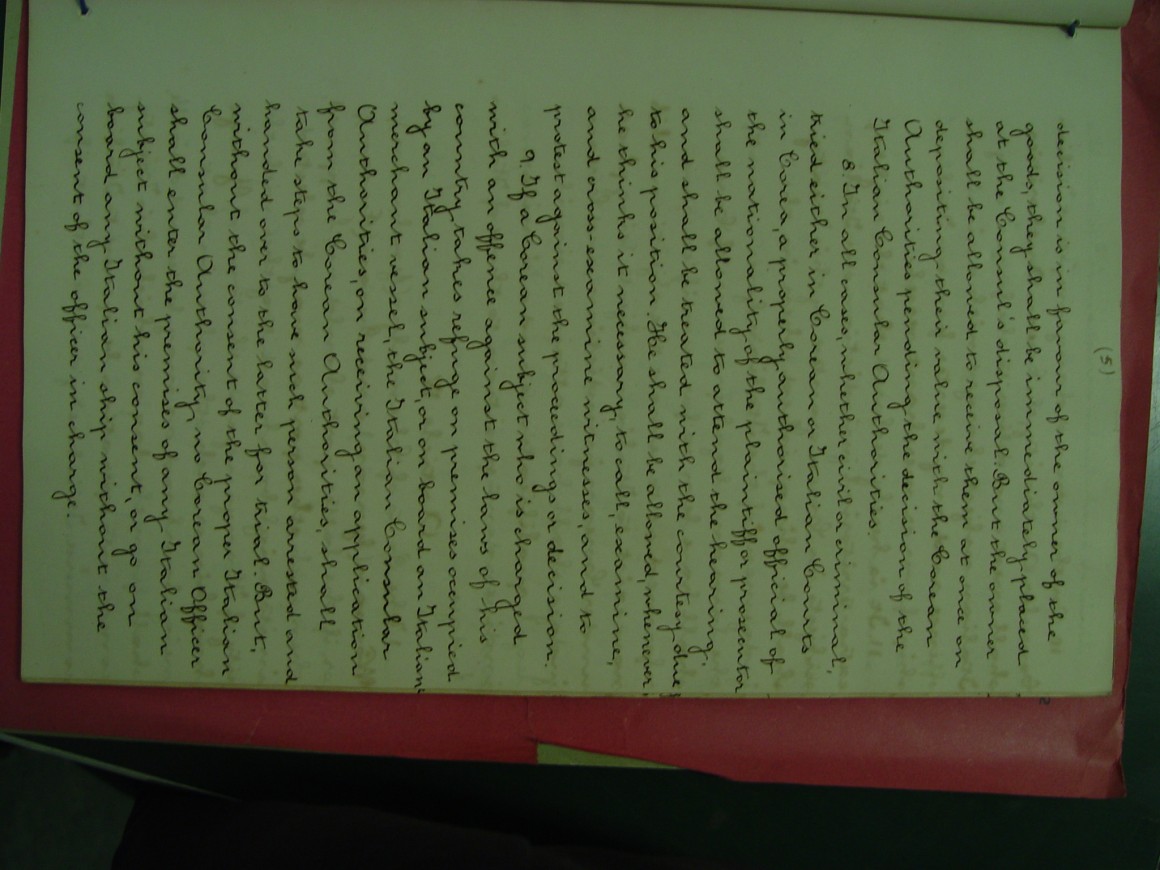 (5)
decision is in favour of the owner of the
goods, they shall be immediately placed
at the Consul's disposal. But the owner
shall be allowed to receive them at once on
depositing their value with the Corean
Authorities pending the decision of the
Italian Consular Authorities.
8. In all cases, whether civil or criminal,
tried either in Corean or Italian Courts
in Corea, a properly authorised official of
the nationality of the plaintiff or prosecutor
shall be allowed to attend the hearing,
and shall be treated with the courtesy due
to his position. He shall be allowed, whenever
he thinks it necessary, to call, examine,
and cross-examine witnesses, and to
protest against the proceedings or decision.
9. If a Corean subject who is charged
with an offence against the laws of his
country takes refuge on premises occupied
by an Italian subject, or on board an Italian
merchant vessel, the Italian Consular
Authorities, on receiving an application
from the Corean Authorities, shall
take steps to have such person arrested and
handed over to the latter for trial. But,
without the consent of the proper Italian
Consular Authority, no Corean Officer
shall enter the premises of any Italian
subject without his consent, or go on
board any Italian ship without the
consent of the officer in charge.